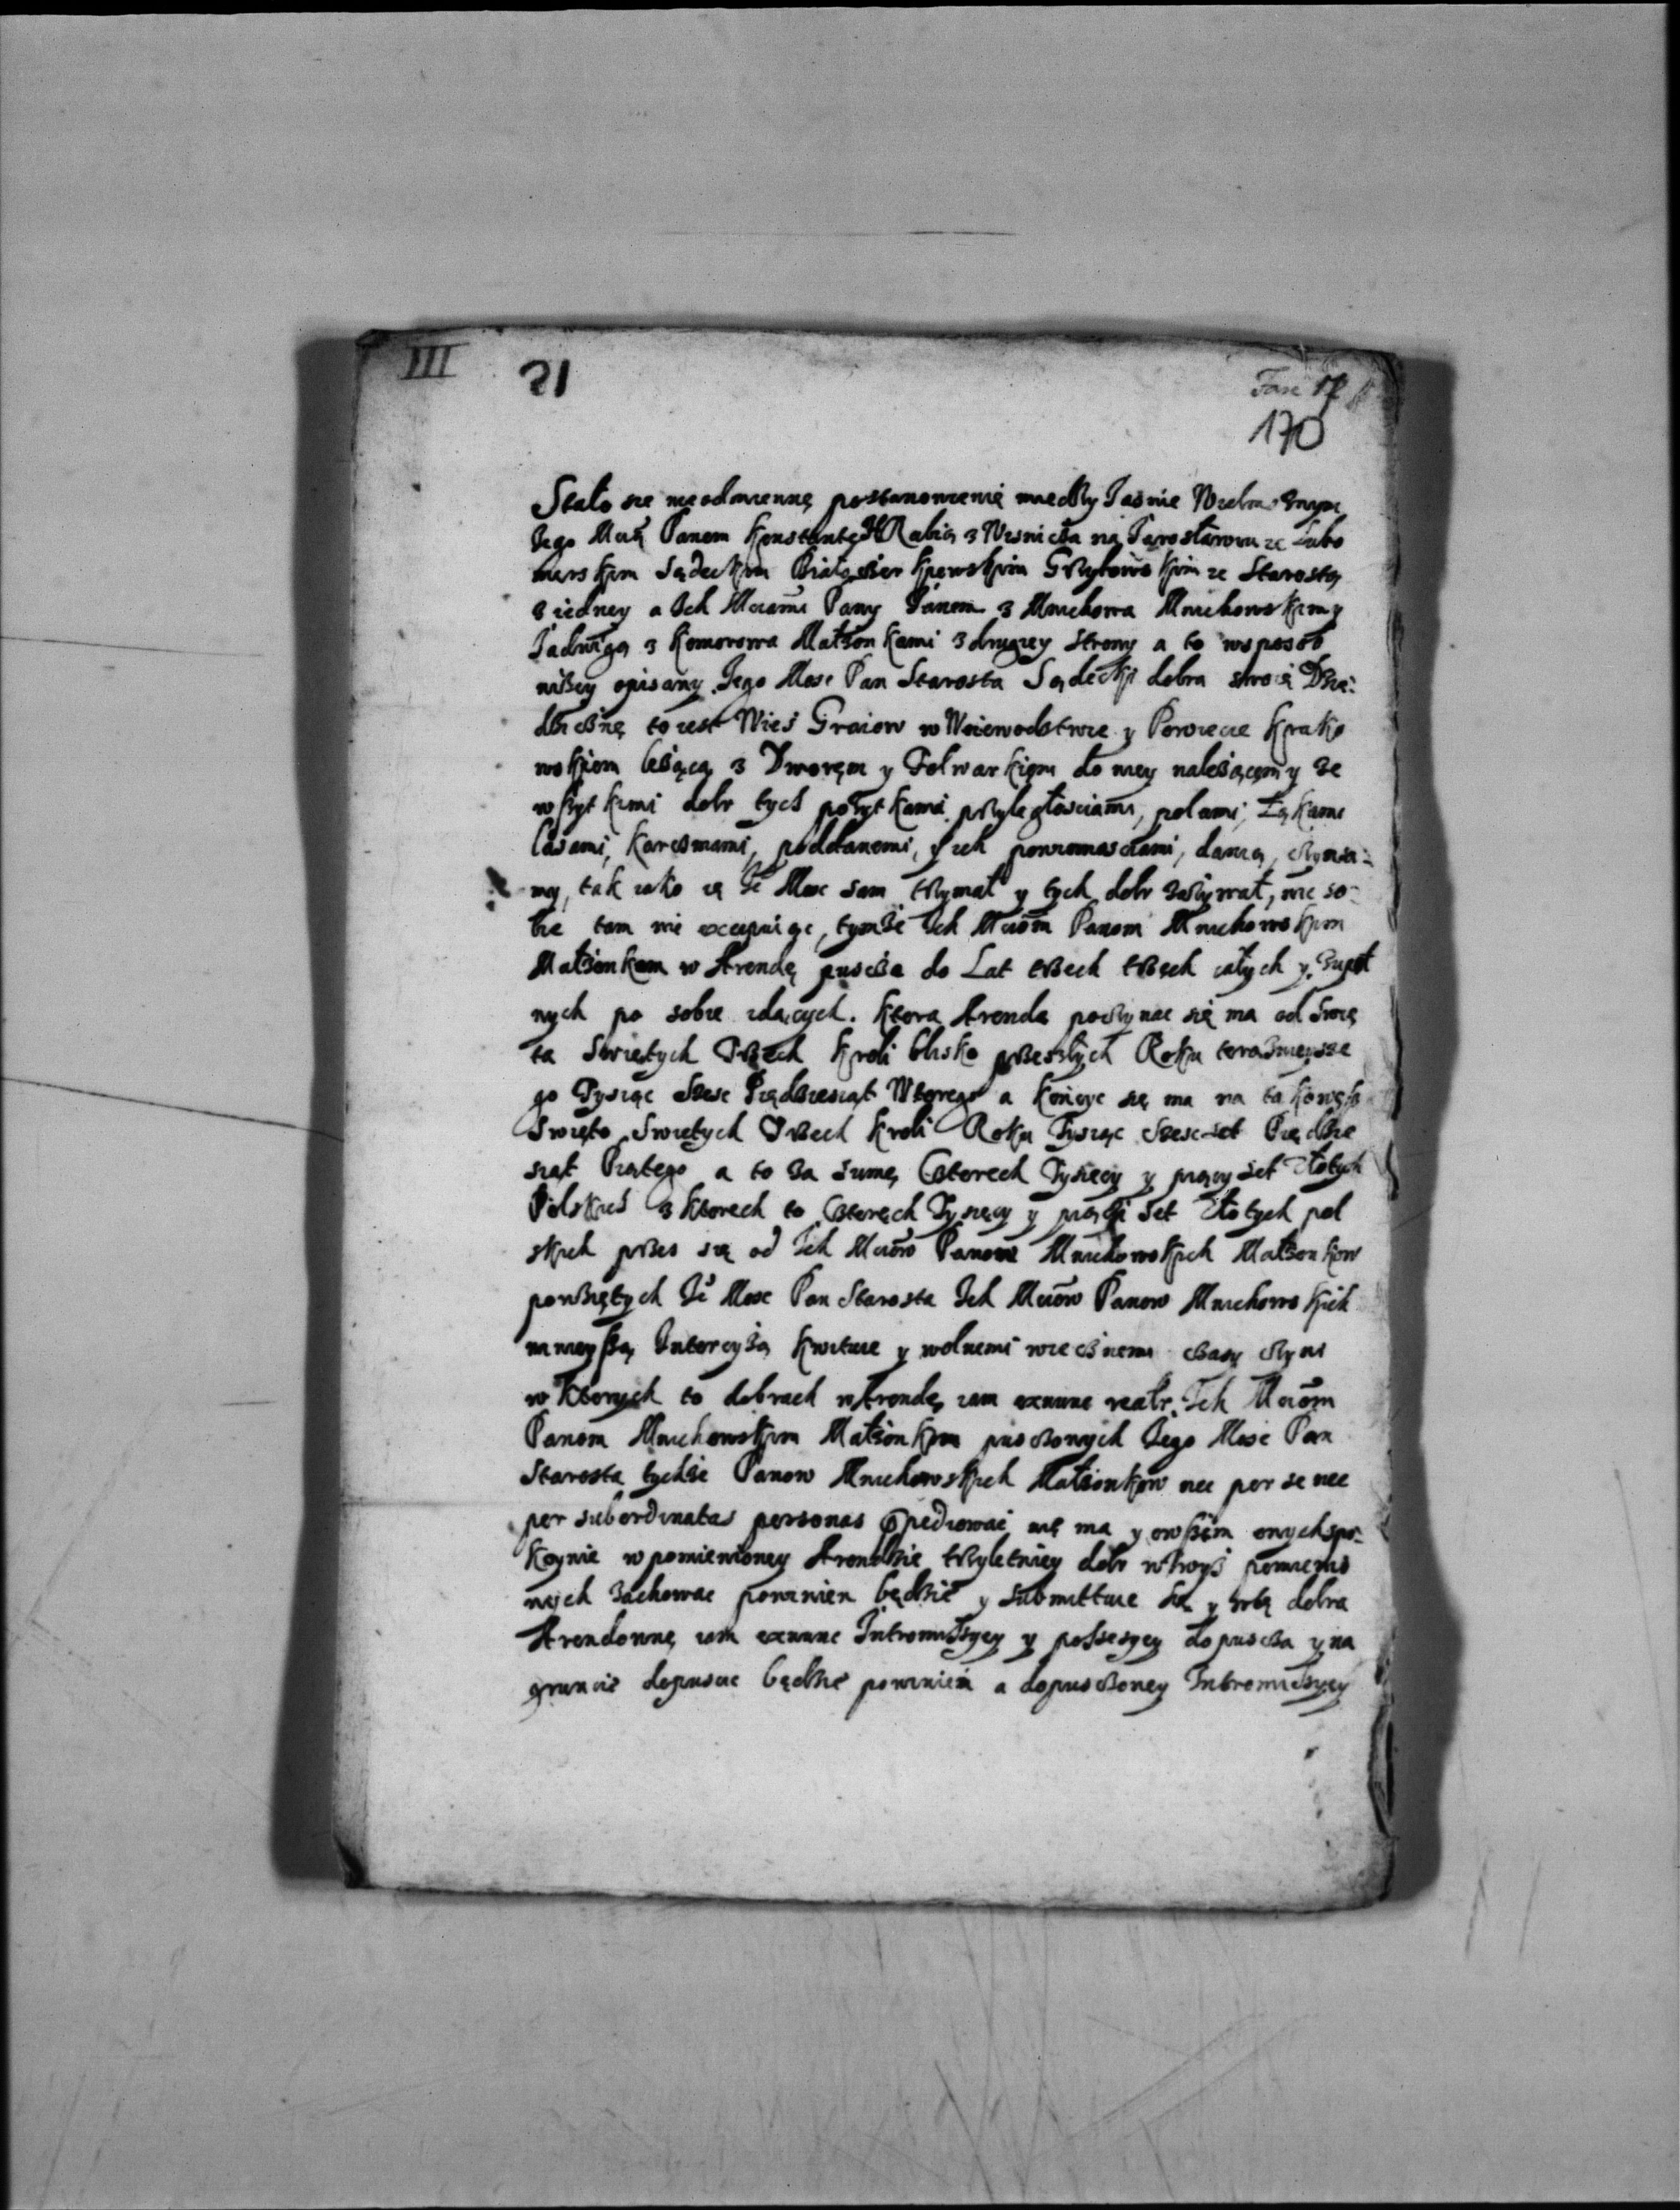 III
21
Fasc 17
170
Stało sie nieodmienne postanowienie miedzy Jasnie Wielmoznym
Jego Mcią Panem Konstantę HRabią z Wisnicza na Jarosławiu ze Lubo
mirskim Sądeckim Białocerkiewskim Grybowskim ze Starostą
z iedney a Ich Mciami Pany Janem z Mnichowa Mnichowskim y
Jadwigą z Komorowa Małżonkami z drugiey strony a to wsposob
niżey opisany. Jego Mosc Pan Starosta Sądecki dobra swoie Dzie-
dziczne to iest Wieś Graiow w Woiewodztwie y Powiecie Krako
wskiem leżącą z Dworęm y Folwarkięm do niey należącęm y ze
wszytkimi dobr tych pożytkami przyległosciami, polami, Łąkami
lasami, karczmami, poddanemi, y ich powinnosciami, danią, czynsza-
my, tak iako ie Je Mosc sam trzymał y tych dobr zażywał, nic so-
bie tam nie excypuiąc, tymże Ich Mciom Panom Mnichowskim
Małżonkom w Arendę puscza do Lat trzech trzech całych y zupeł
nych po sobie idących. Ktora Arenda poczynac się ma od Swię
ta Swietych Trzech Kroli blisko przeszłych Roku teraznieysze
go Tysiąc Szesc Piędziesiąt Wtorego a kończyc się ma na takowęsz
Swięto Swietych Trzech Kroli Roku Tysiąc Szescset Piędzie
siąt Piątego a to za sumę Czterech Tysięcy y pięcy set Złotych
Polskich z ktorech to Czteręch Tysięcy y pięci set Złotych pol
skich przes się od Ich Mciow Panow Mnichowskich Małżonkow
powziętych Je Mosc Pan Starosta Ich Mciow Panow Mnichowskich
ninieyszą Intercyżą kwituie y wolnemi wiecznemi czasy czyni
w ktorych to dobrach w Arendę iam exnunc realr. Ich Mciom
Panom Mnichowskim Małżonkom pusczonych Jego Mosc Pan
Starosta tychże Panow Mnichowskich Małżonkow nec per se nec
per subordinatas personas impediowac nie ma y owszem onych spo-
koynie w pomienioney Arendzie trzyletniey dobr wtwyż pomienio
nych zachowac powinien będzie y submittuie się y w tę dobra
Arendowne iam exnunc Intromissyey y possesyey dopuscza y na
gruncie dopuscic będzie powinien a dopusczoney Intromissyey